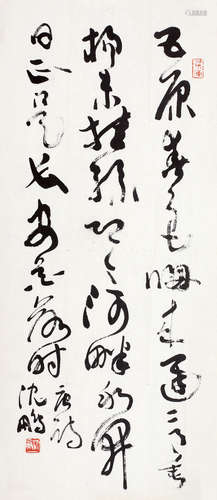 五原春色旧来迟二月垂
杨未挂丝即今河畔冰开
日正是长安花落时
唐诗
沈鹏